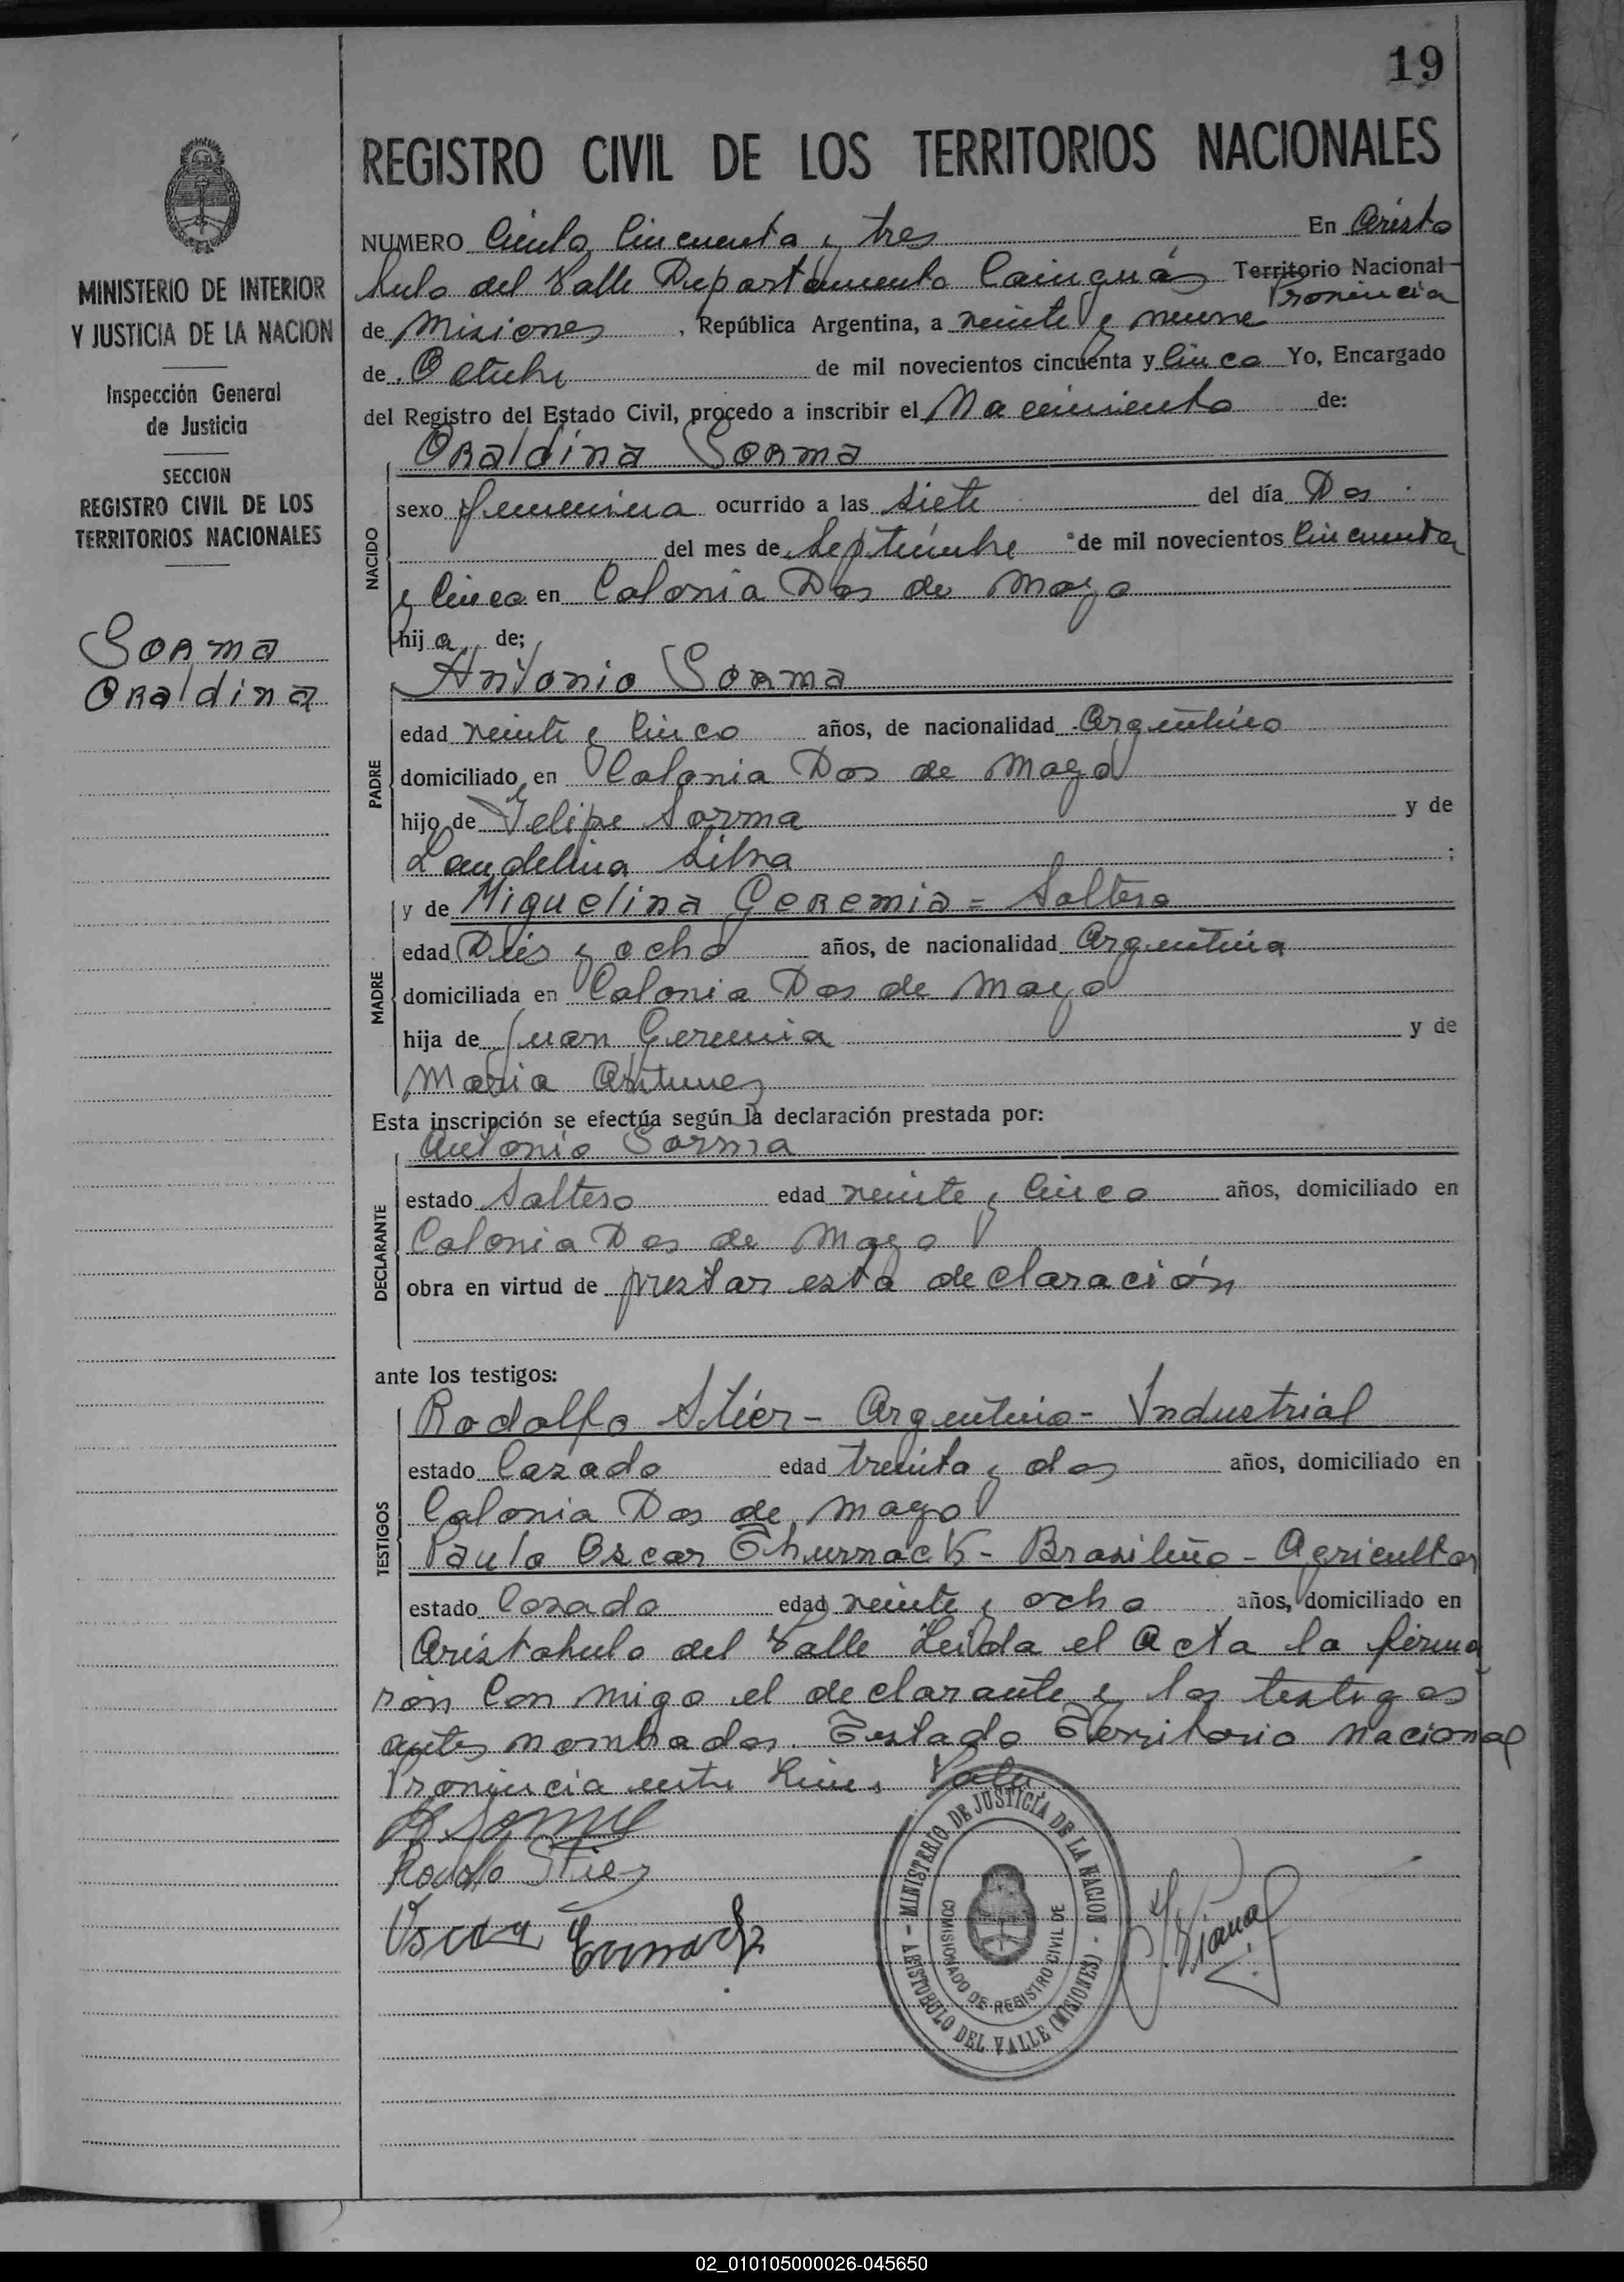 19
REGISTRO CIVIL DE LOS TERRITORIOS NACIONALES
MINISTERIO DE INTERIOR
Y JUSTICIA DE LA NACION
Inspección General
de Justicia
SECCION
REGISTRO CIVIL DE LOS
TERRITORIOS NACIONALES
Sorma
Oraldina
NUMERO Ciento Cincuenta y tres En Aristo
bulo del Valle Departamento Cainguás Territorio Nacional
Provincia
de Misiones, República Argentina, a veinte y nueve
de Octubre de mil novecientos cincuenta y Cinco Yo, Encargado
del Registro del Estado Civil, procedo a inscribir el Nacimiento de:
Oraldina Sorma
NACIDO
sexo femenina ocurrido a las siete del día Dos
del mes de Septiembre de mil novecientos Cincuenta
y Cinco en Colonia Dos de Mayo
hij a de;
Antonio Sorma
PADRE
edad veinte y Cinco años, de nacionalidad Argentino
domiciliado en Colonia Dos de Mayo
hijo de Felipe Sorma y de
Laudelina Silva ;
y de Miguelina Geremia = Soltera
MADRE
edad Diés y ocho años, de nacionalidad Argentina
domiciliada en Colonia Dos de Mayo
hija de Juan Geremia y de
Maria Antunez
Esta inscripción se efectúa según la declaración prestada por:
Antonio Sorma
DECLARANTE
estado Soltero edad veinte y Cinco años, domiciliado en
Colonia Dos de Mayo
obra en virtud de prestar esta declaración
ante los testigos:
TESTIGOS
Rodolfo Stiér - Argentino - Industrial
estado Casado edad treinta y dos años, domiciliado en
Colonia Dos de Mayo
Paulo Oscar Thurnack - Brasileño - Agricultor
estado Casado edad veinte y ocho años, domiciliado en
Aristobulo del Valle Leída el Acta la firma
ron Con migo el declarante y los testigos
antes nombrados. Testado Territorio Nacional
Provincia entre Line. Vale
Rodolfo Stier
Oscar
MINISTERIO DE JUSTICIA DE LA NACION
COMISIONADO DE REGISTRO CIVIL DE
ARISTOBULO DEL VALLE (MISIONES)
02_010105000026-045650